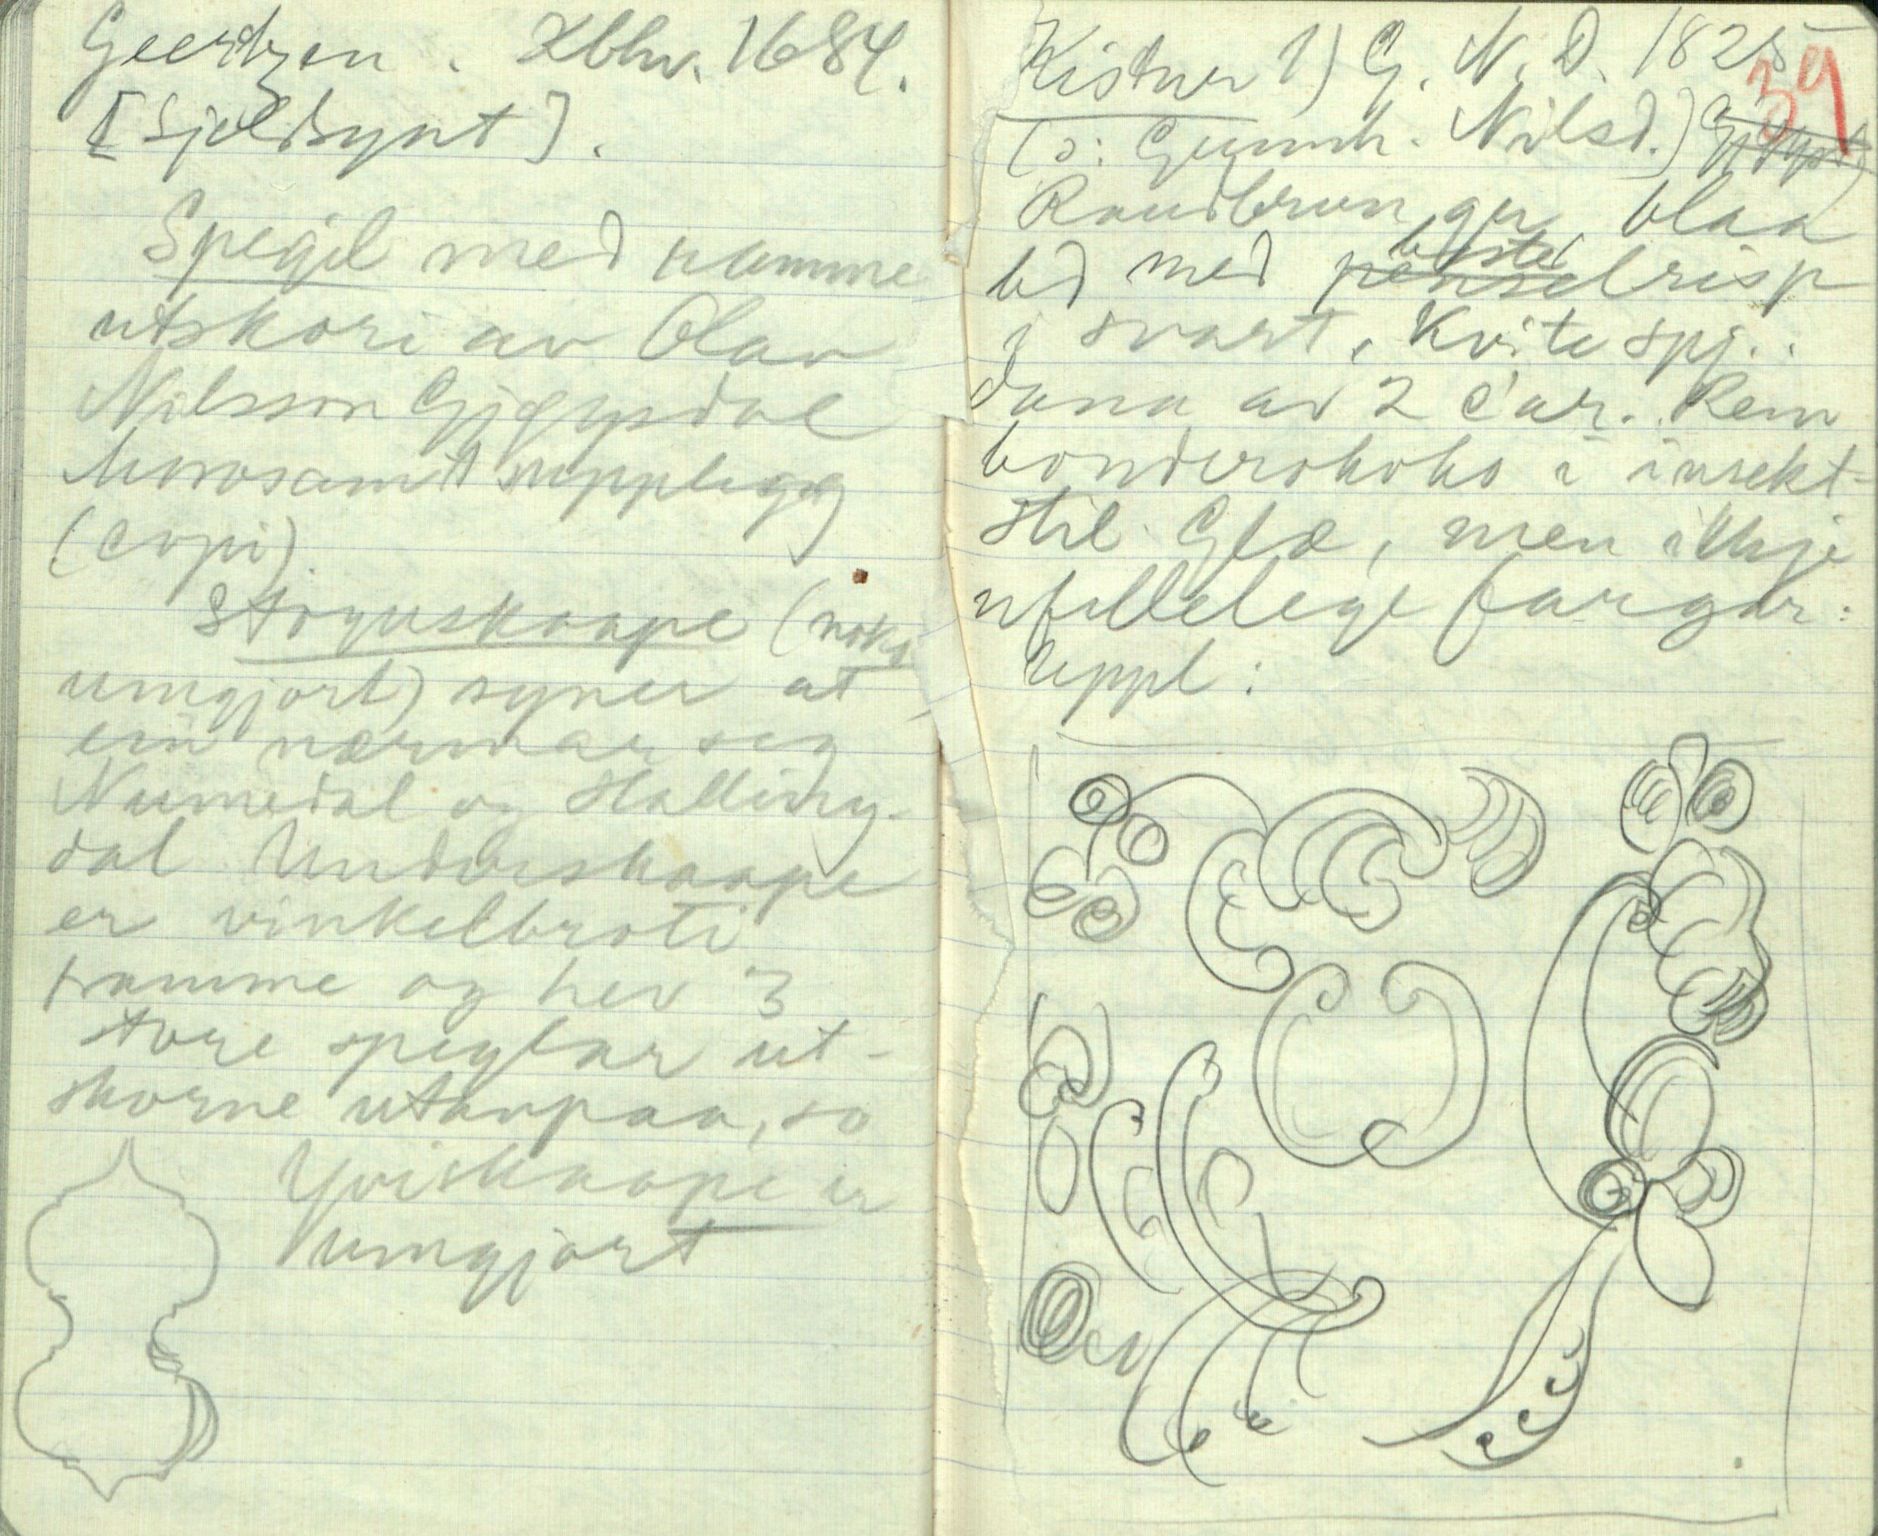 Geertzen. Kbhv. 1684.
[Sjeldsynt].
Spegjel med ramme
utskori av Olav
Nilsson Gjøysdal
Morosamt upplegg
(copi)
Stoguskaape (noko
umgjort) syner at
ein nærmar seg
Numedal og Halling-
dal Underskaape
er vinkelbroti
ramme og hev 3
store speglar ut-
skorne utanpaa, so
Yviskaape er
umgjort
Kistur 1) G. N. D. 1825
39
(ɔ: Gunnh. Nilsd.)
Raudbrun gr, blaa
bd med bustel penselrisp
i svart, Kvite spj..
dana av 2 c'ar. Rein
bonderokoko i insekt-
stil. Glæ, men ikkje
ufillelege fargar:
Uppl: